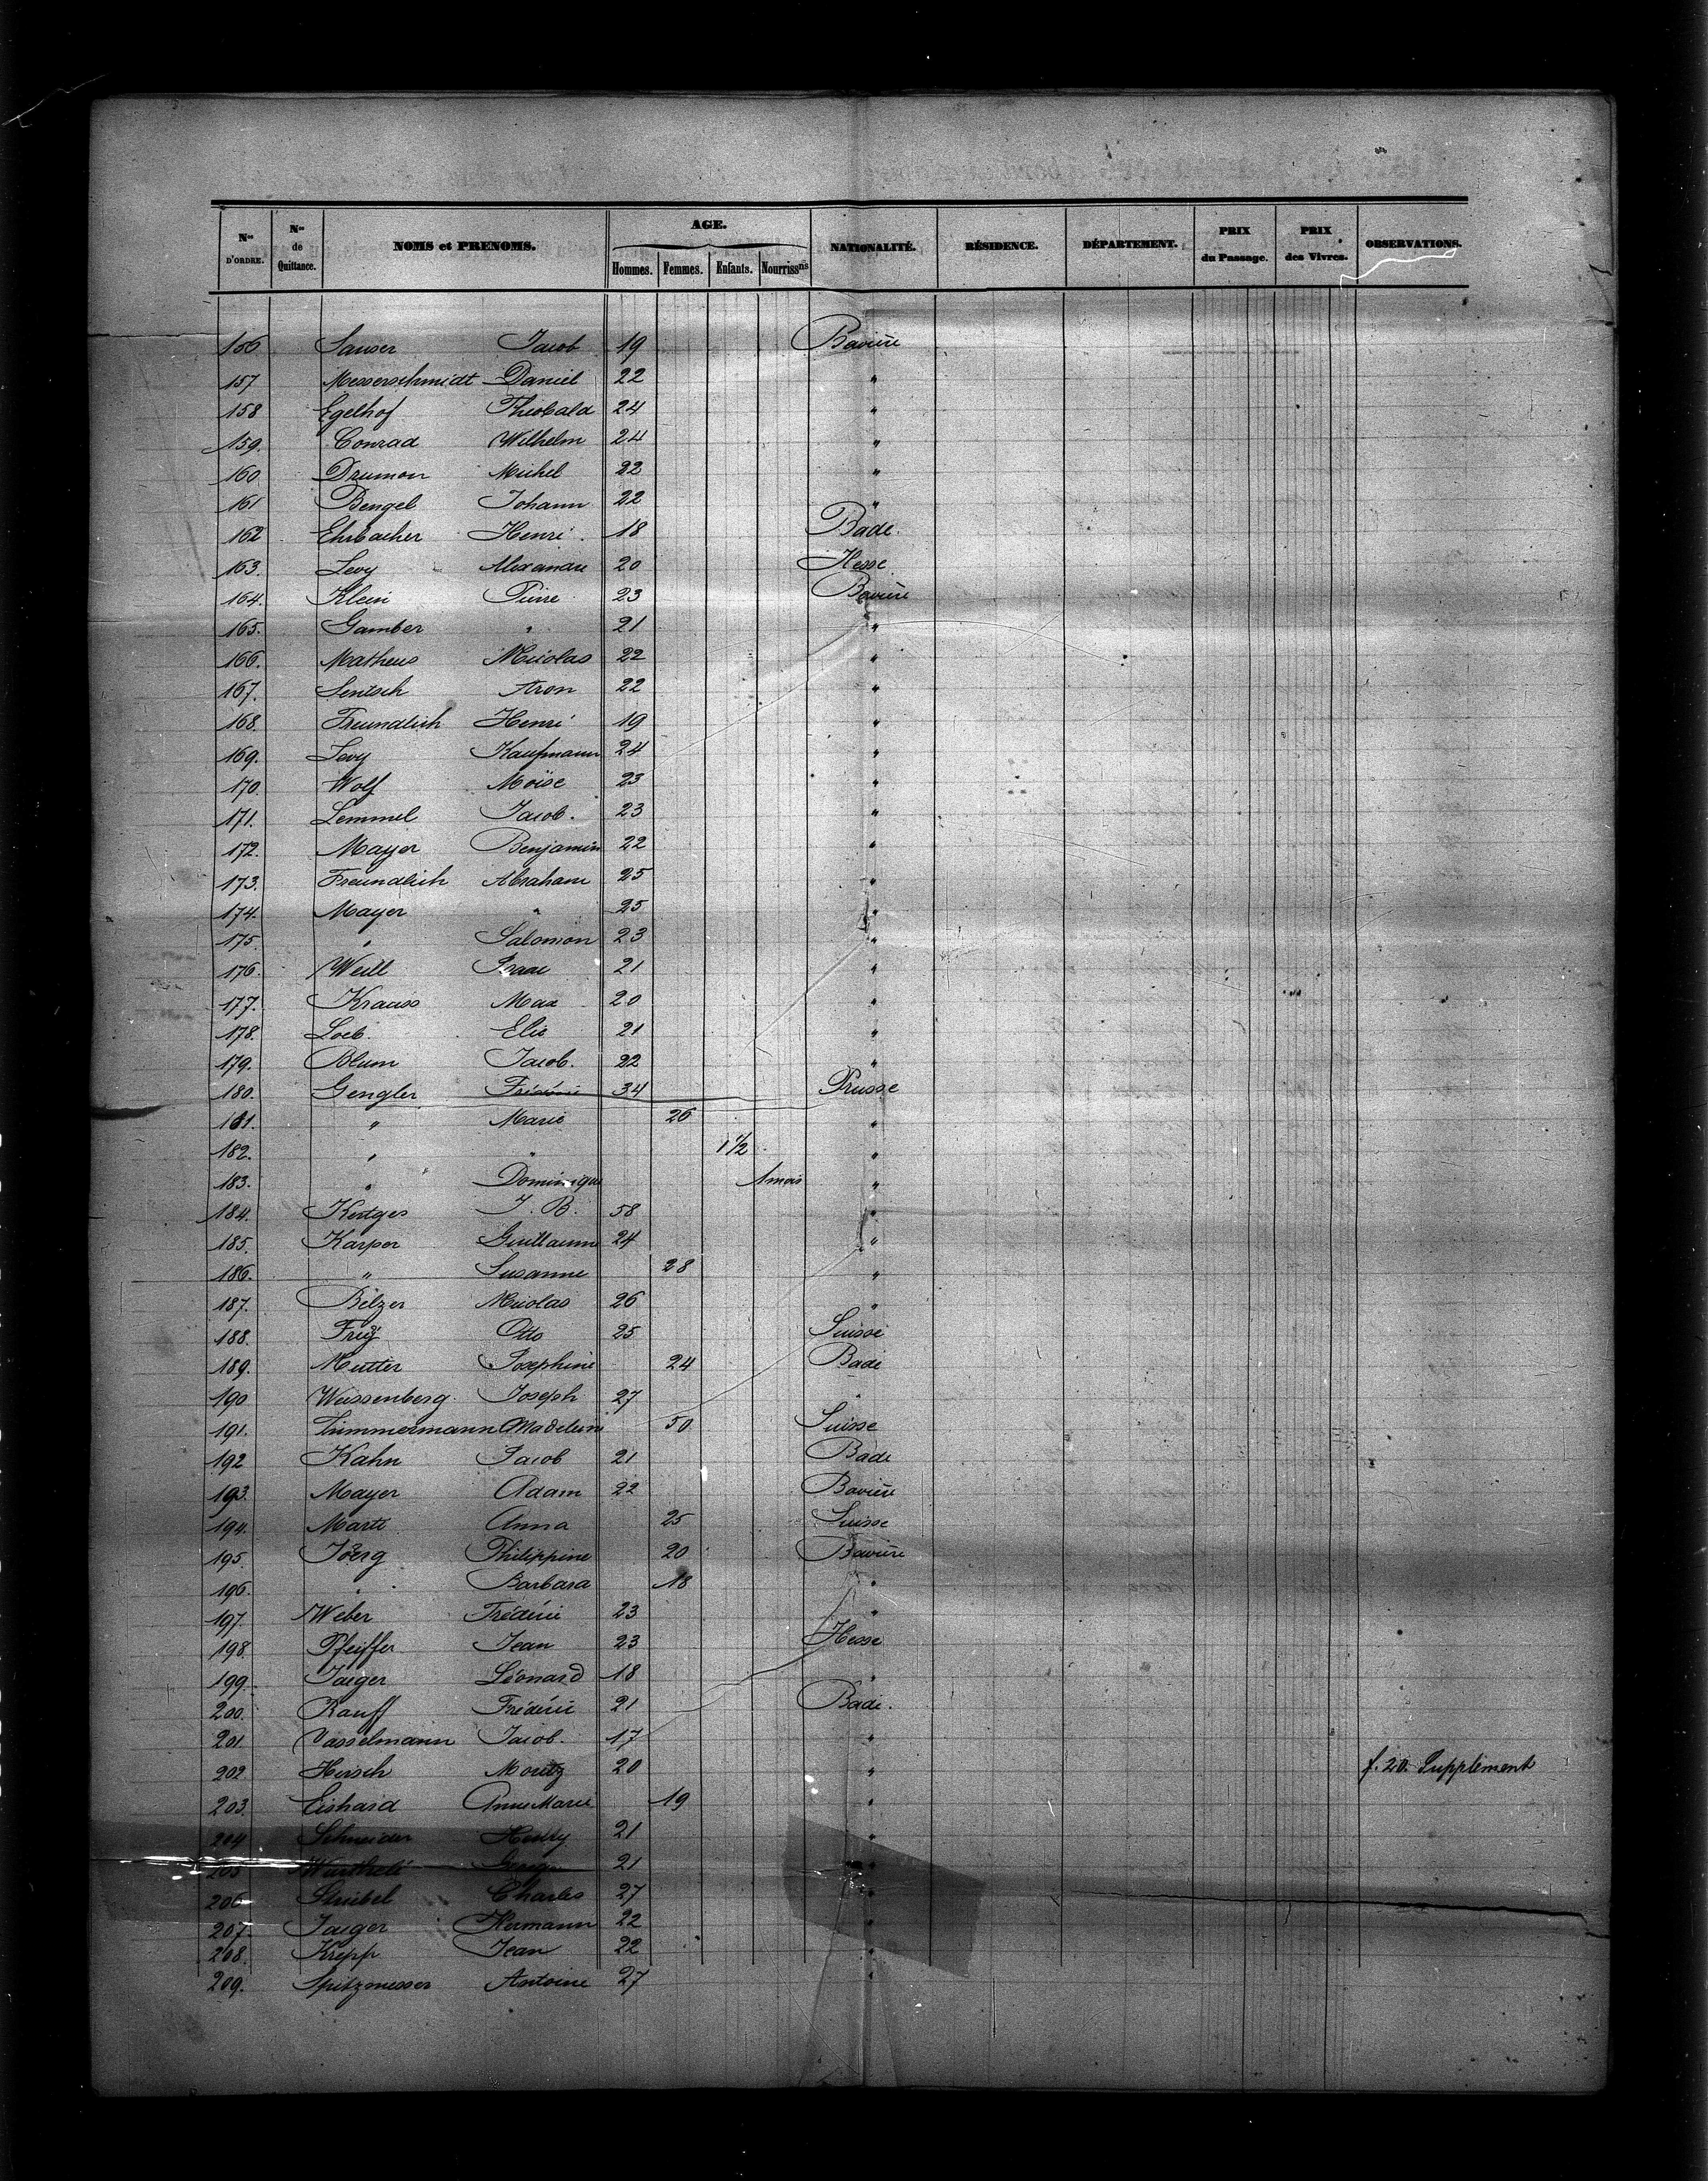 Nos D'ORDRE. Nos de Quittance. NOMS et PRENOMS. AGE. Hommes. Femmes. Enfants. Nourrissns NATIONALITÉ. RÉSIDENCE. DÉPARTEMENT. PRIX du Passage. PRIX des Vivres. OBSERVATIONS.
156 Sauser Jacob 19 Bavière
157 Messerschmidt Daniel 22 "
158 Egelhof Théobald 24 "
159. Conrad Wilhelm 24 "
160 Drumon Michel 22 "
161 Bengel Johann 22 "
162 Ehrbacher Henri 18 Bade.
163. Levy Alexandre 20 Hesse
164. Klein Pierre 23 Bavière
165. Gamber " 21 "
166. Matheus Nicolas 22 "
167. Lentsch Aron 22 "
168. Freundlich Henri 19 "
169. Levy Kaufmann 24 "
170. Wolf Moïse 23 "
171. Lemmel Jacob. 23 "
172. Mayer Benjamin 22 "
173. Freundlich Abraham 25 "
174. Mayer " 25 "
175. " Salomon 23 "
176. Weill Isaac 21 "
177. Krauss Max 20 "
178. Loeb. Elie 21 "
179. Blum Jacob. 22 "
180. Gengler Frédéric 34 Prusse
181. " Marie 26 "
182. " " 1 1/2 "
183. " Dominique 1 mois "
184. Kertges J. B. 58 "
185. Karper Guillaume 24 "
186. " Susanne 28 "
187. Belzer Nicolas 26 "
188. Frey Otto 25 Suisse
189. Mutter Josephine 24 Bade
190 Weissenberg. Joseph 27 "
191. Zimmermann Madeleine 50 Suisse
192 Kahn Jacob 21 Bade
193. Mayer Adam 22 Bavière
194. Marti Anna 25 Suisse
195. Joerg Philippine 20 Bavière
196. " Barbara 18 "
197. Weber Frédéric 23 "
198. Pfeiffer Jean 23 Hesse
199. Jaiger Léonard 18 "
200. Rauff Frédéric 21 Bade.
201. Vasselmann Jacob. 17 "
202. Hirsch Moritz 20 " f. 20. Supplément
203. Eishard Anne Marie 19 "
204 Schneider 21 "
205 Georges 21 "
206 Striebel Charles 27 "
207. Jaiger Hermann 22 "
208. Krepp Jean 22 "
209. Spitzmesser Antoine 27 "